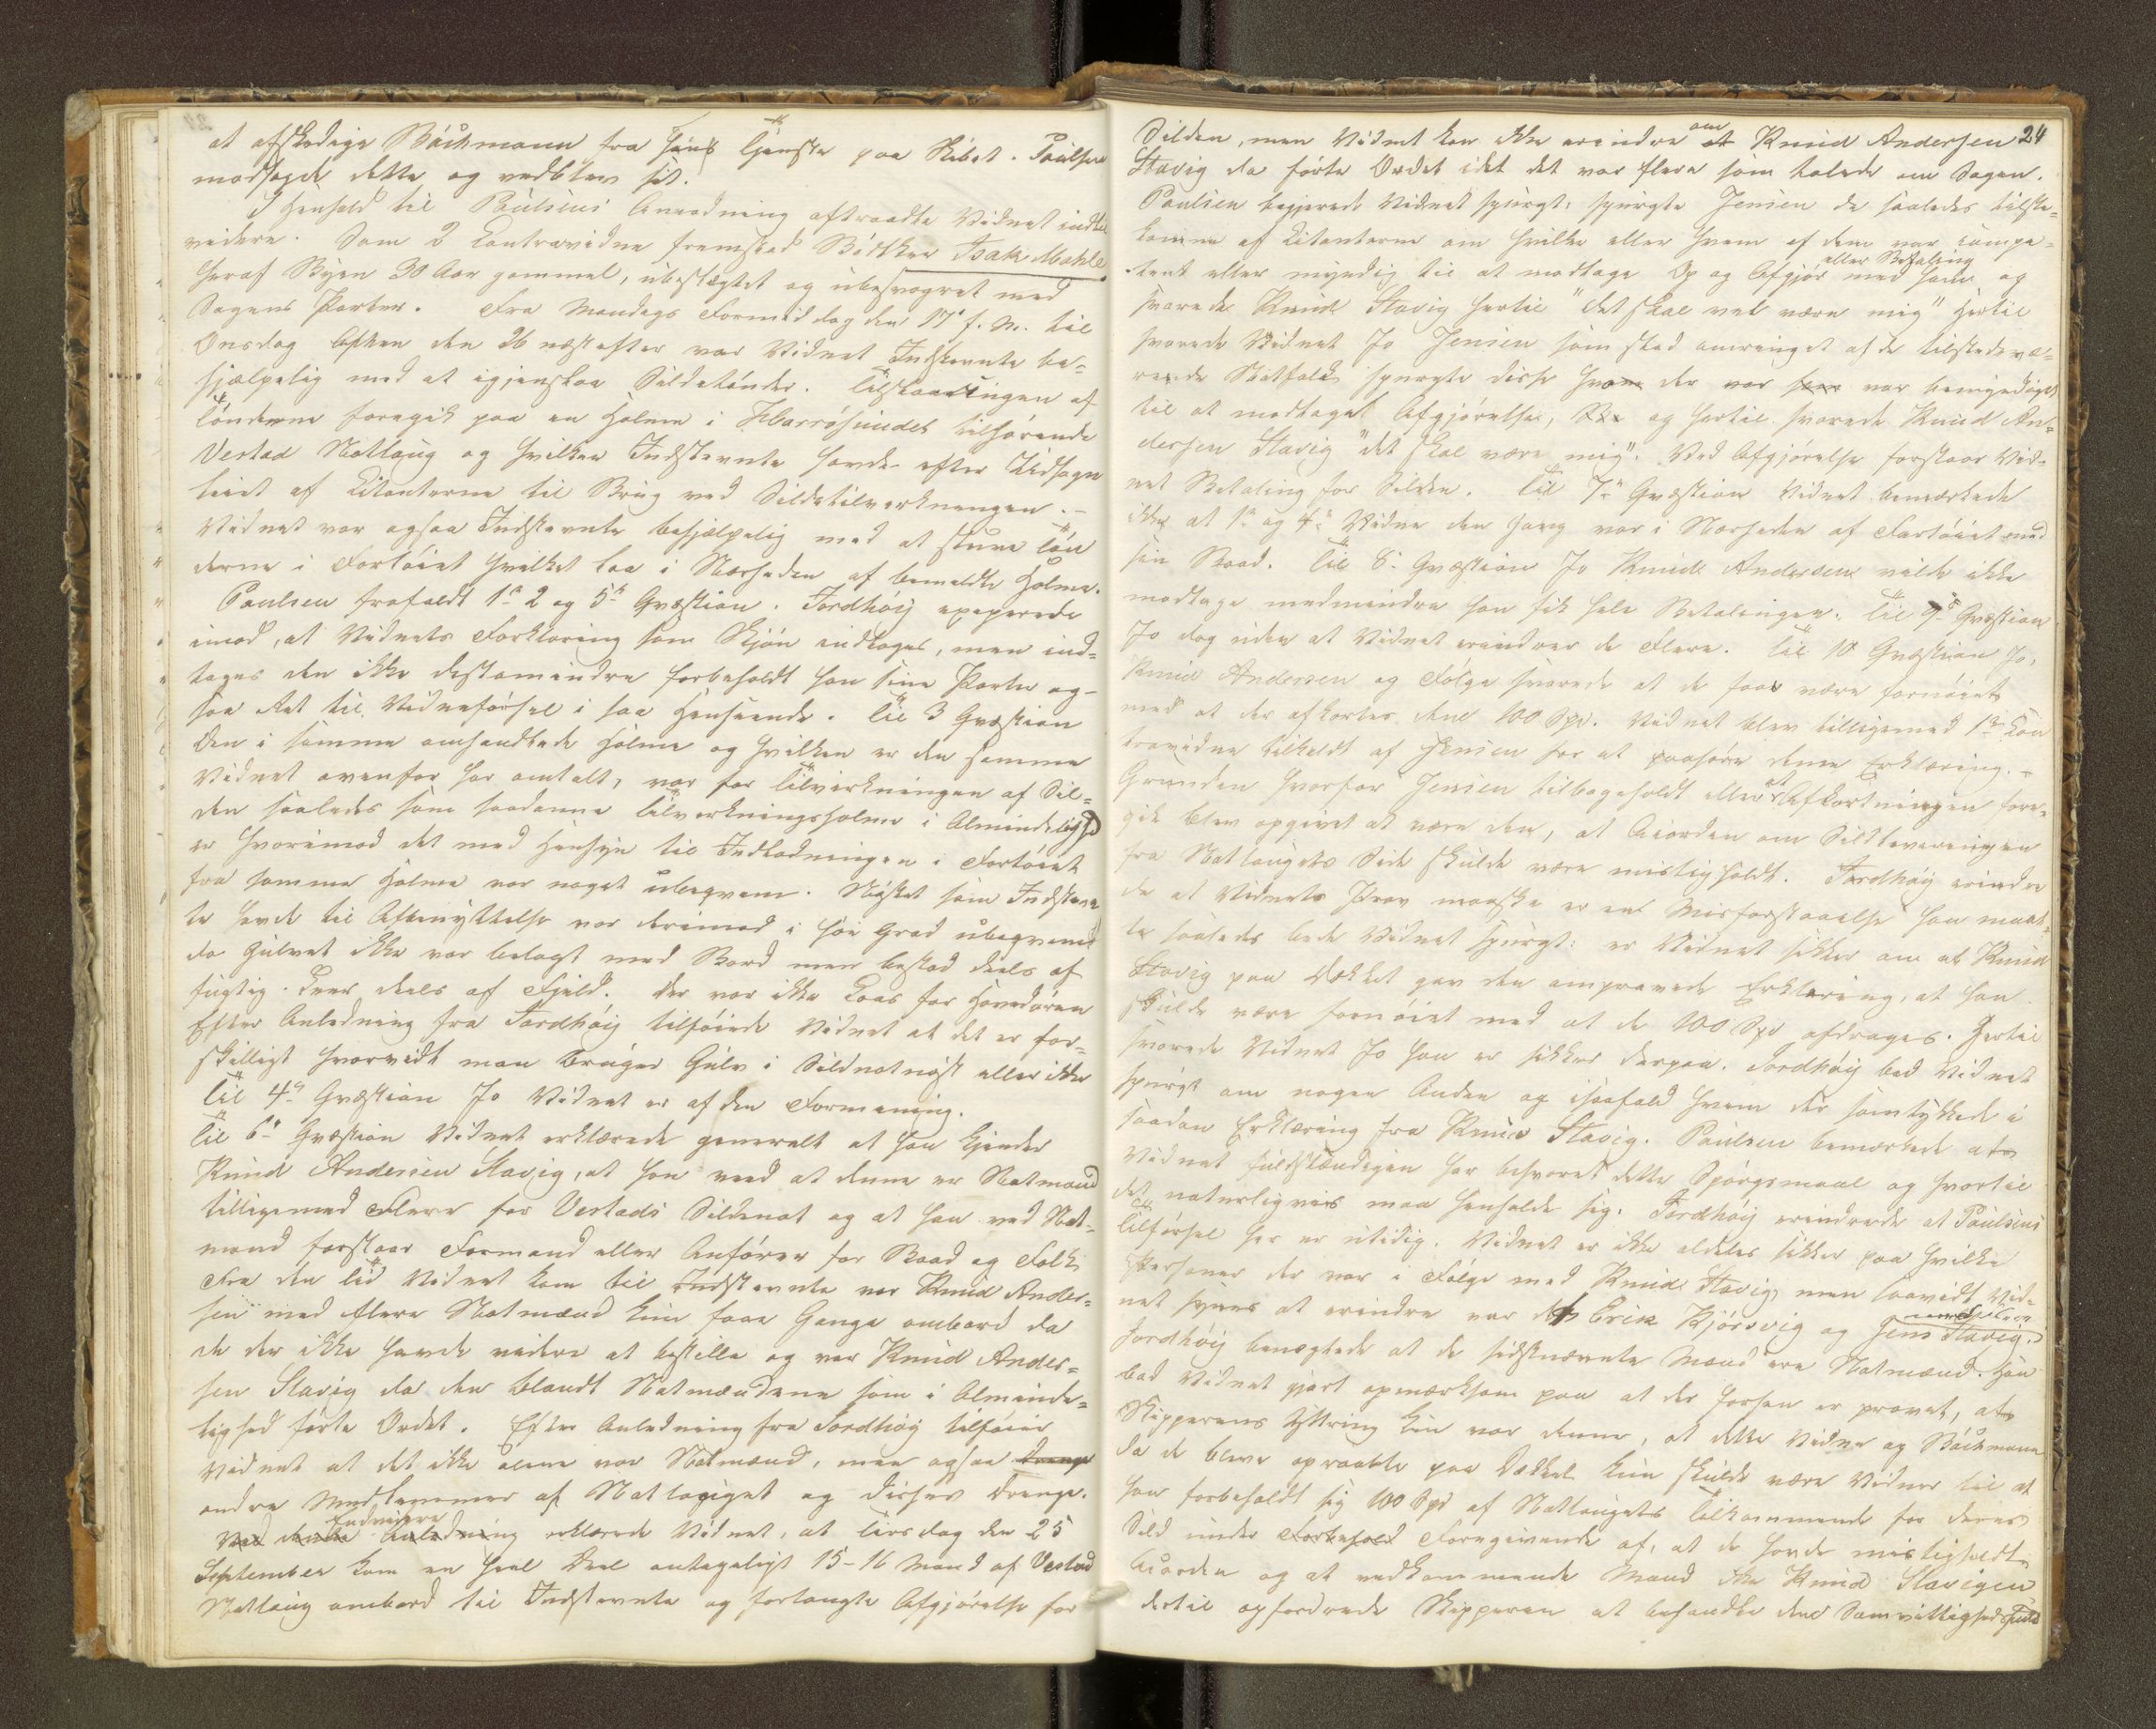 at afskedige Bäckmann fra hans Tjeneste paa Skibet. Paulsen
modsagde dette og vedblev sit.
I Henhold til Paulsens Anmodning aftraadte Vidnet indtil
videre. Som 2 Contravidne fremstod Bødker Isak Mahle
heraf Byen 30 Aar gammel, ubeslægtet og ubesvogret med
Sagens Parter. Fra Mandags Formiddag den 17de f. M. til
Onsdag Aften den 26 næstefter var Vidnet Indstevnte be=
hjælpelig med at igjenslaa Sildetønder. Tilslaaningen af
Tønderne foregik paa en Holme i Harrøsundet tilhørende
Vestad Notlaug og hvilken Indstevnte havde efter Udsagn
leiet af Citanterne til Brug ved Sildetilvirkningen. -
Vidnet var ogsaa Indstevnte behjælpelig med at stuve Tøn
derne i Fartøiet hvilket laa i Nærheden af bemeldte Holme.
Paulsen frafaldt 1ste 2 og 5te Qvæstion. Jordhøij
imod, at Vidnets Forklaring som Skjøn indtages, men ind=
tages den ikke destomindre forbeholdt han sine Parter og-
saa Ret til Vidneførsel i saa Henseende. Til 3 Qvæstion
Den i samme omhandlede Holme og hvilken er den samme
Vidnet ovenfor har omtalt, var for Tilvirkningen af Sil=
den saaledes som saadanne Tilvirkningsholme i Almindelighed
er hvorimod det med Hensyn til Indladningen i Fartøiet
fra samme Holme var noget ubeqvem. Nøstet som Indstevn
te havde til Afbenyttelse var derimod i høi Grad ubeqvemt
da Gulvet ikke var belagt med Bord men bestod deels af
fugtig Leer deels af Fjeld. Der var ikke Laas for Hoveddøren
Efter Anledning fra Jordhøij tilføiede Vidnet at det er for=
skilligt hvorvidt man bruger Gulv i Sildnotnøst eller ikke
Til 4de Qvæstion Jo Vidnet er af den Formening.
Til 6te Qvæstion Vidnet erklærede generelt at han kjender
Knud Andersen Stavig, at han veed at denne er Notmand
tilligemed Flere for Vestads Sildenot og at han ved Not=
mand forstaar Formand eller Anfører for Baad og Folk
Fra den Tid Vidnet kom til Indstevnte var Knud Ander=
sen med flere Notmænd kun faae Gange ombord da
de der ikke havde videre at bestille og var Knud Ander=
sen Stavig da den blandt Notmændene som i Alminde=
lighed førte Ordet. Efter Anledning fra Jordhøij tilføier
Vidnet at det ikke alene var Notmænd, men ogsaa Drenge
andre Medlemmer af Notlauget og disses Drenge.
Ved denne Anledning Endvidere erklærede Vidnet, at Tirsdag den 25
September kom en heel Deel antageligt 15-16 Mand af Vestad
Notlaug ombord til Indstevnte og forlangte Afgjørelse for
24
Silden, men Vidnet kan ikke erindre at om Knud Andersen
Stavig da førte Ordet idet det var flere som talede om Sagen.
Paulsen begjerede Vidnet spurgt: spurgte Jensen de saaledes tilste=
komne af Citanterne om hvilke eller hvem af dem var compe=
tent eller myndig til at modtage Op og Afgjør eller Betaling med ham og
svarede Knud Stavig hertil "det skal vel være mig" Hertil
svarede Vidnet Jo Jensen som stod omringet af de tilstedevæ=
rende Notfolk spurgte disse hvem der var som var bemyndiget
til at modtaget Afgjørelse, og hertil svarede Knud An=
dersen Stavig "det skal være mig". Ved Afgjørelse forstaar Vid=
net Betaling for Silden. Til 7de Qvæstion Vidnet bemærkede
ikke at 1ste og 4de Vidne den Gang var i Nærheden af Fartøiet med
sin Baad. Til 8de Qvæstion Jo Knud Andersen vilde ikke
modtage medmindre han fik hele Betalingen. Til 9de Qvæstion
Jo dog uden at Vidnet erindrer de Flere. Til 10 Qvæstion Jo,
Knud Andersen og Følge svarede at de faar være fornøiet
med at der afkortes dem 100 Spd. Vidnet blev tilligemed 1ste Con
travidne tilkaldt af Jensen for at paahøre denne Erklæring. -
Grunden hvorfor Jensen tilbageholdt eller at Afkortningen fore=
gik blev opgivet at være den, at Accorden om Sildleveringen
fra Notlaugets Side skulde være misligholdt. Jordhøij erindre
de at Vidnets Prov maaske er en Misforstaaelse han maat=
te saaledes bede Vidnet spurgt: er Vidnet sikker om at Knud
Stavig paa Dækket gav den omprovede Erklæring, at han
skulde være fornøiet med at de 100 Spd afdrages. Hertil
svarede Vidnet Jo han er sikker derpaa. Jordhøij bad Vidnet
spurgt om nogen Anden og isaafald hvem der samtykkede i
saadan Erklæring fra Knud Stavig. Paulsen bemærkede at
Vidnet fuldstændigen har besvaret dette Spørgsmaal og hvortil
det naturligviis maa henholde sig. Jordhøij erindrede at Paulsens
Tilførsel her er utidig. Vidnet er ikke aldeles sikker paa hvilke
Personer der var i Følge med Knud Stavig men saavidt Vid=
net synes at erindre var det Erik Kjørsvig og Jens Stavig.
Jordhøij benægtede at de sidstnævnte Mænd ere Notmænd. Han
bad Vidnet gjort opmærksom paa at der forhen er provet, at
Skipperens Yttring kun var denne, at dette Vidne og Bäckmann
da de bleve opraabte paa Dækket kun skulde være Vidner til at
han forbeholdt sig 100 Spd af Notlaugets Tilkommende for deres
Sild under Forbehold Foregivende af, at de havde misligholdt
Accorden og at vedkommende Mand ikke Knud Stavigen
dertil opfordrede Skipperen at behandle dem Samvittighedsfuld